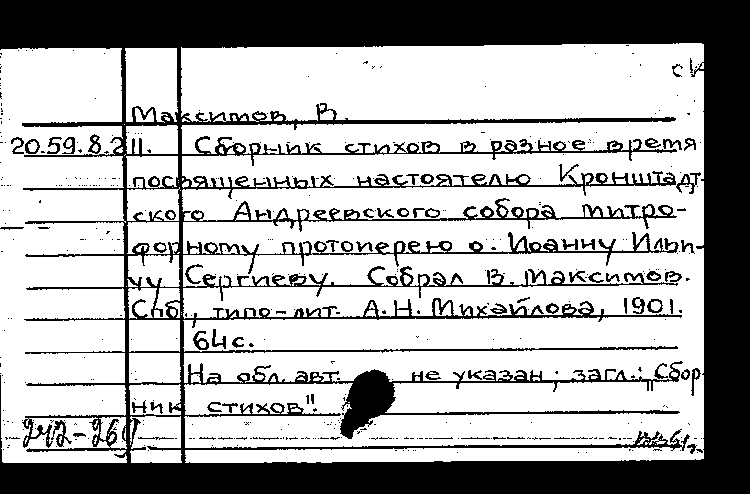 Максимов, В.
20.59.8.211. Сборник стихов в разное время
посвященных настоятелю Кронштадт-
ского Андреевского собора митро-
форному протоиерею о. Иоанну Ильи-
чу Сергиеву. Собрал В. Максимов.
Спб., типо-лит. А.Н. Михайлова, 1901.
64с.
На обл. авт. не указан; загл.: „Сбор-
ник стихов".
242-269